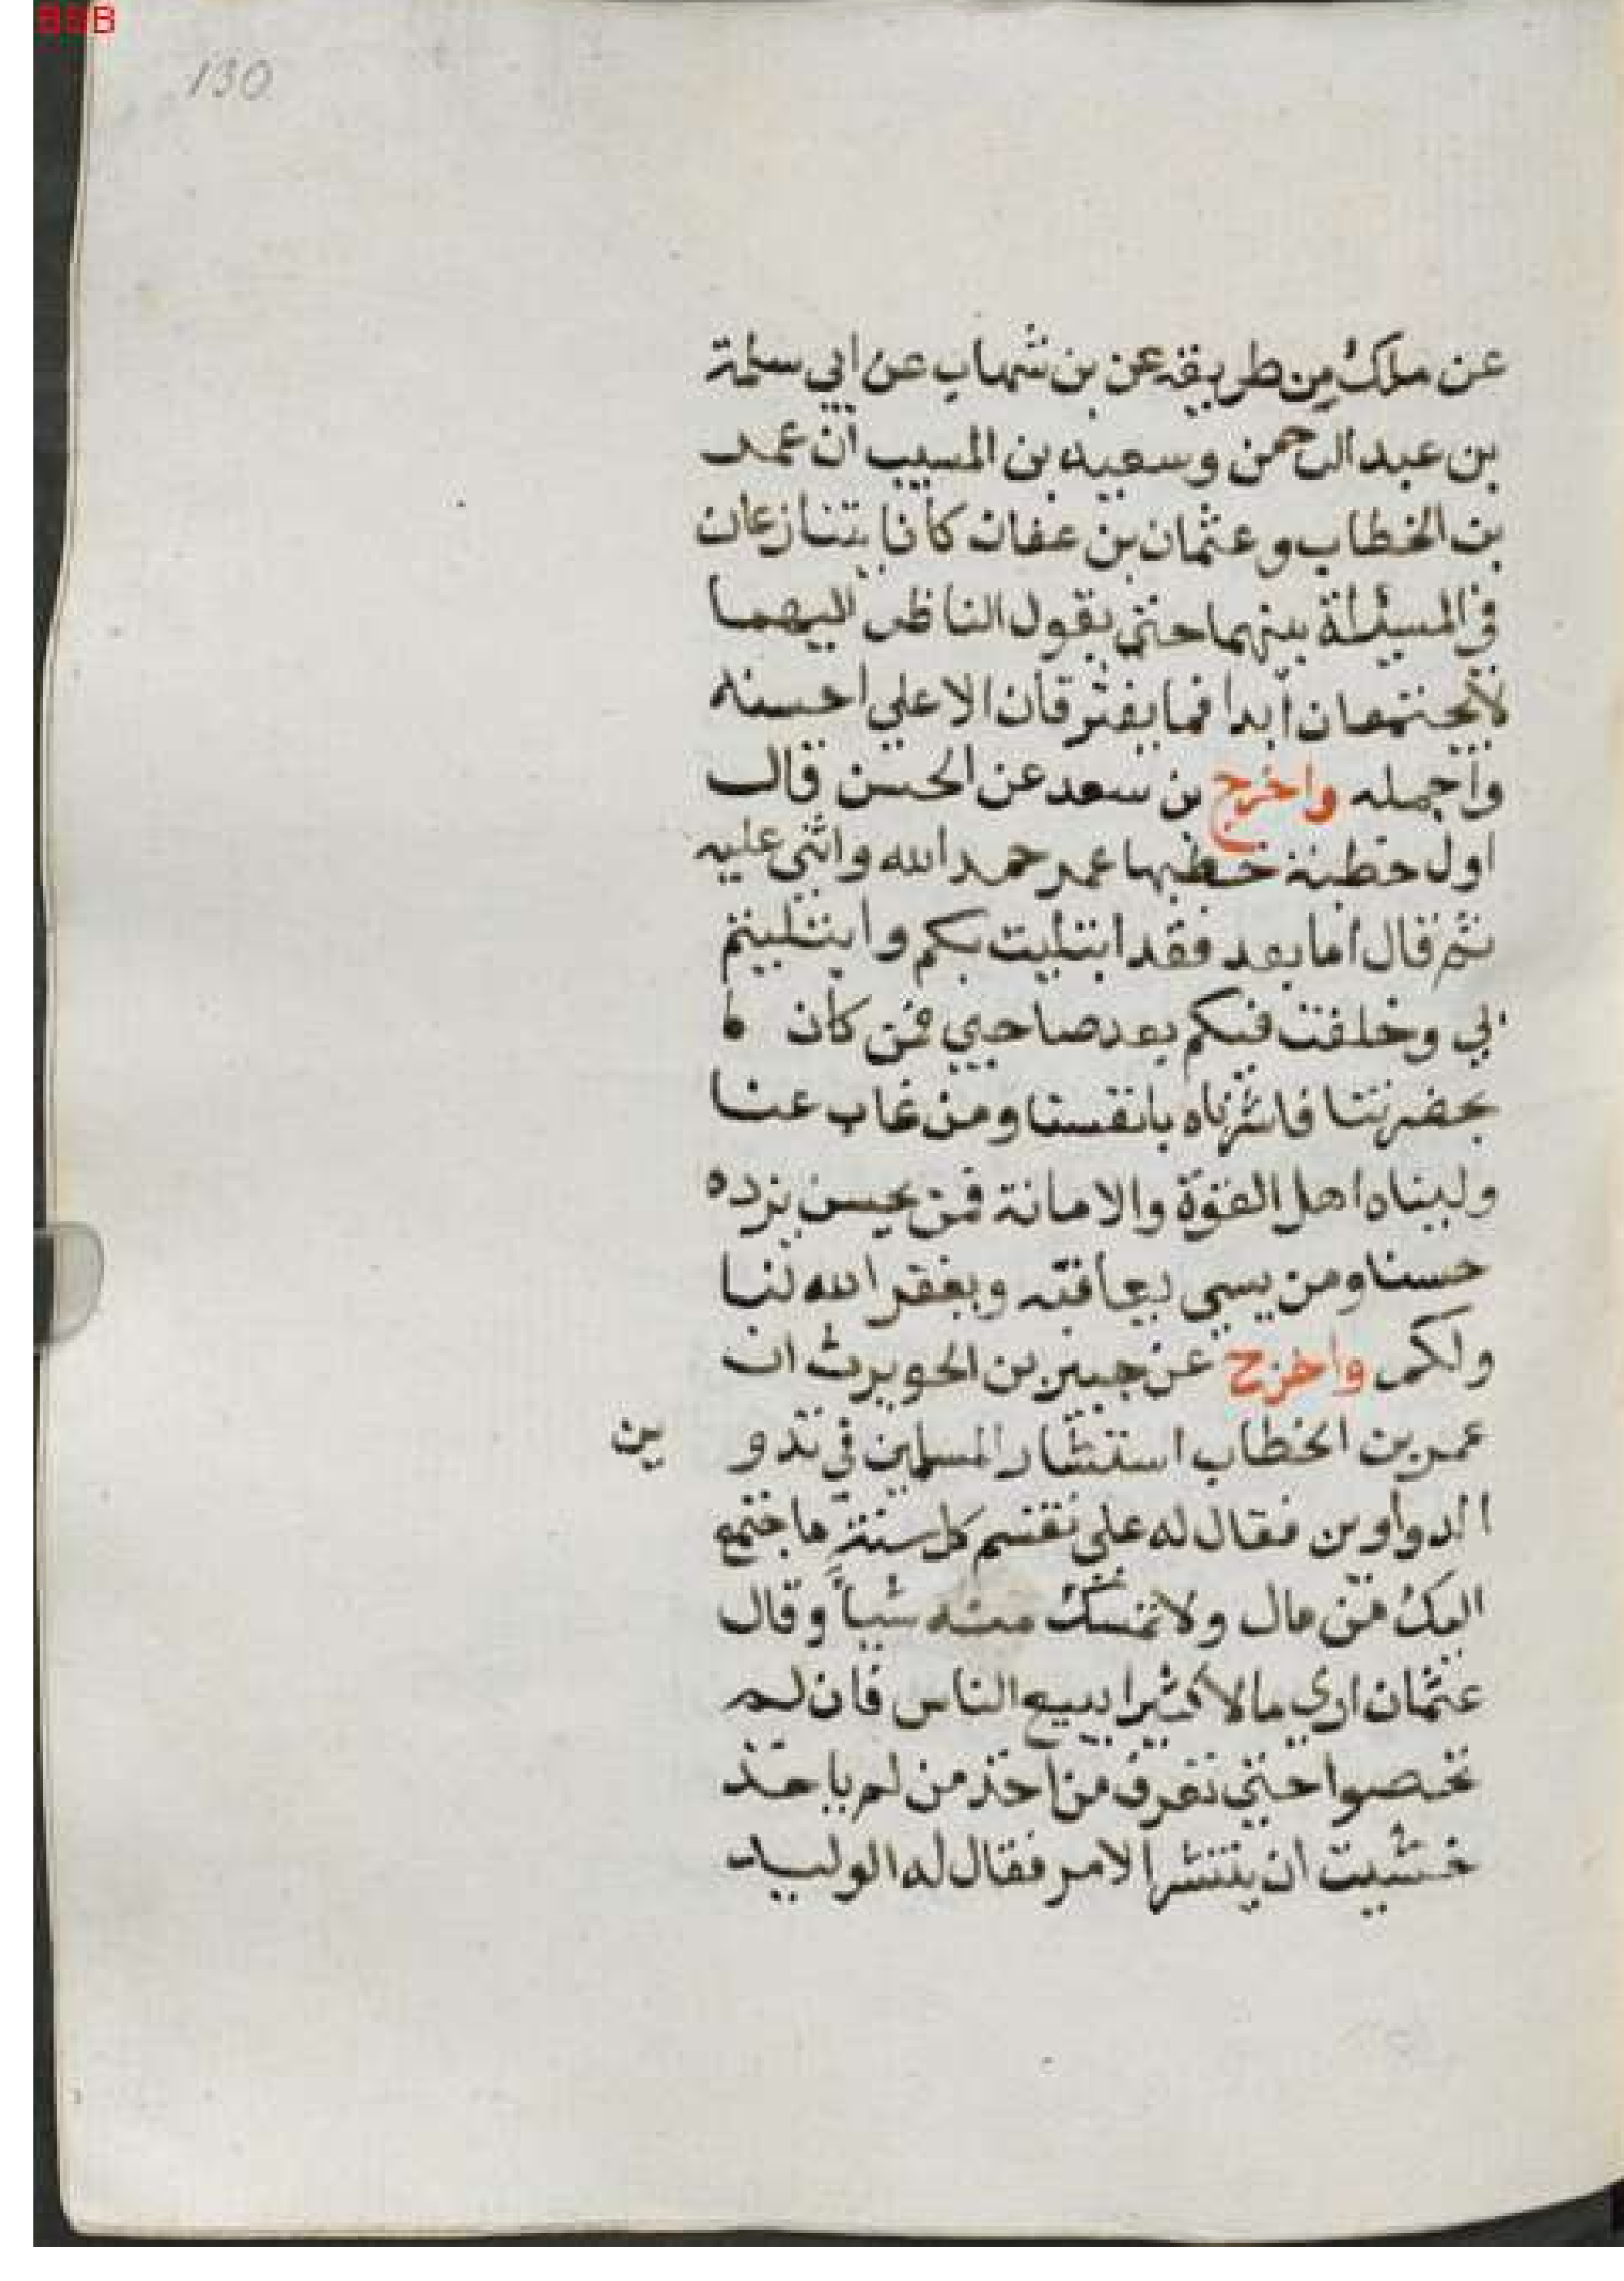 BSB
130
عن ملك من طريقه عن بن شهاب عن ابي سلمة
بن عبد الرحمن وسعيد بن المسيب ان عمر
بن الخطاب وعثمان بن عفان كانا يتنازعان
في المسئلة بينهما حتى يقول الناظر اليهما
لا يجتمعان ابدا فما يفترقان الا علي احسنه
واجمله واخرج بن سعد عن الحسن قال
اول خطبة خطبها عمر حمد الله واثني عليه
ثم قال اما بعد فقد ابتليت بكم وابتليتم
بي وخلفت فيكم بعد صاحبي فمن كان
بحضرتنا باشرناه بانفسنا ومن غاب عنا
وليناه اهل القوة والامانة فمن يحسن نزده
حسنا ومن يسي نعاقبه ويغفر الله لنا
ولكم واخرج عن جبير بن الحويرث ان
عمر بن الخطاب استشار المسلمين في تدو ين
الدواوين فقال له علي تقسم كل سنة ما اجتمع
اليك من مال ولا تمسك منه شيأ وقال
عثمان اري مالا كثيرا يسع الناس فان لم
تحصوا حتي تعرف من اخذ من لم ياخذ
خشيت ان ينتشر الامر فقال له الوليد